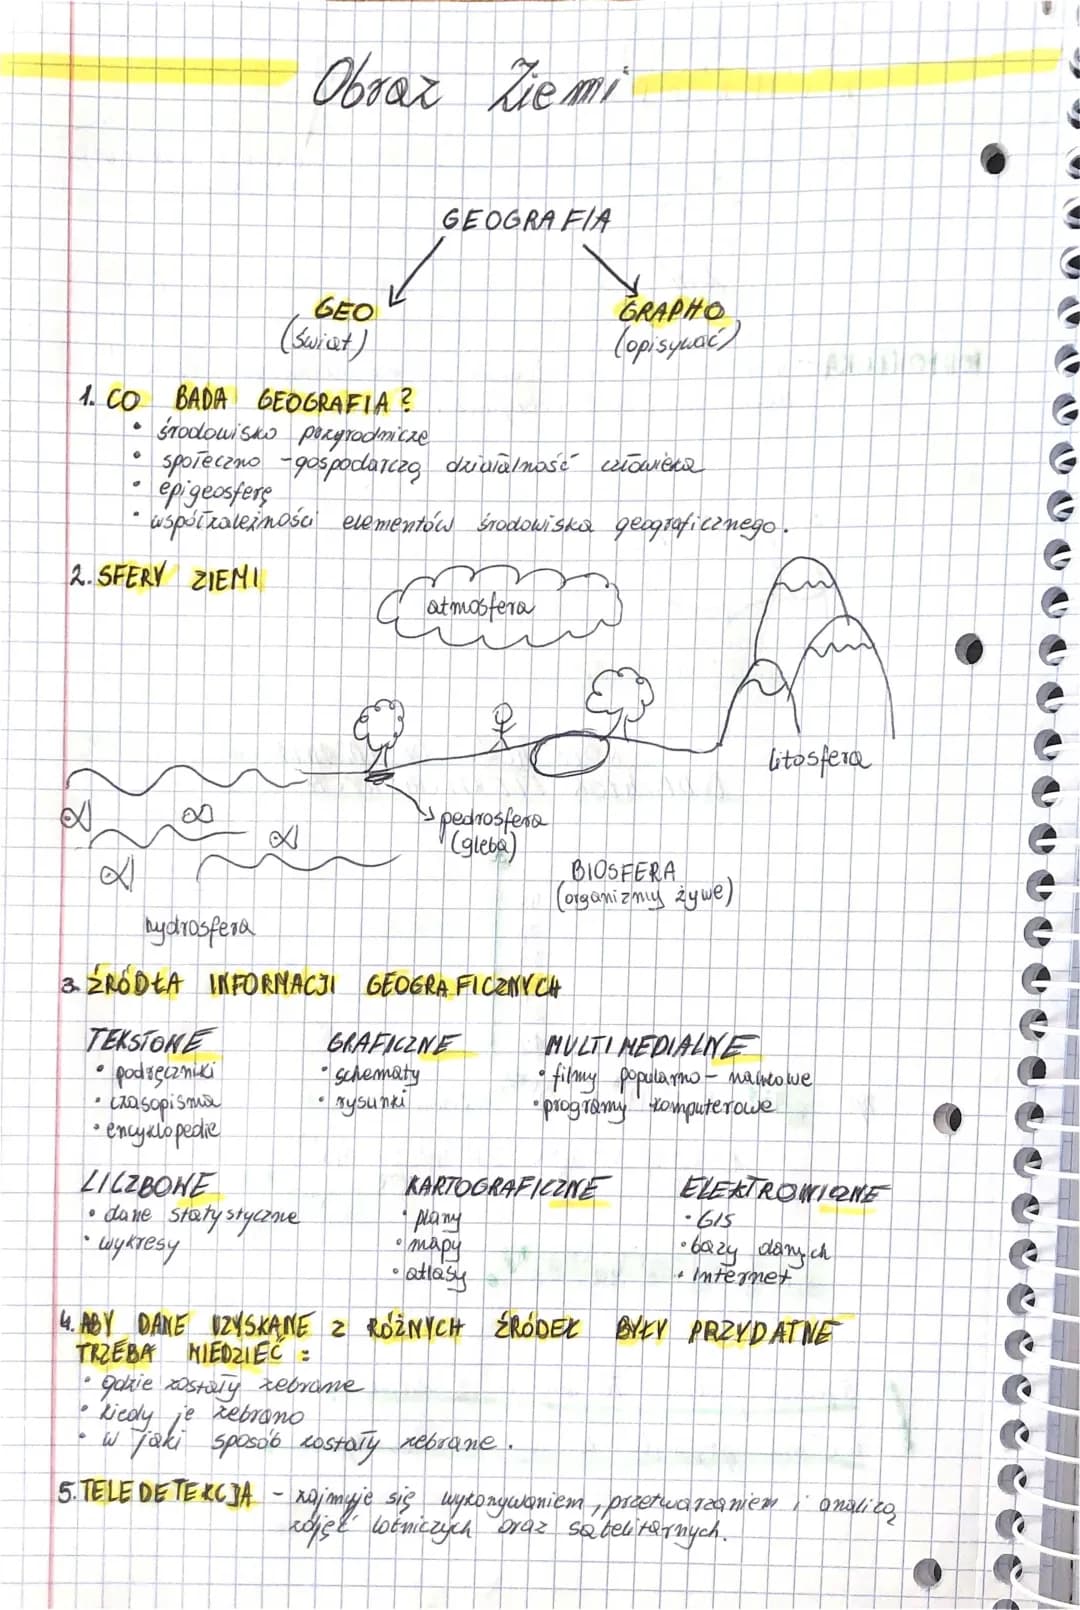 Obraz Ziemi
GEOGRAFIA
GEO GRAPHO
(świat) (opisywać)
1. CO BADA GEOGRAFIA?
• środowisko przyrodnicze
• społeczno - gospodarczą działalność człowieka
• epigeosferę
• współzależności elementów środowiska geograficznego.
2. SFERY ZIEMI
atmosfera
litosfera
pedrosfera
(gleba)
BIOSFERA
(organizmy żywe)
hydrosfera
3. ŹRÓDŁA INFORMACJI GEOGRAFICZNYCH
TEKSTOWE GRAFICZNE MULTIMEDIALNE
• podręczniki • schematy • filmy popularno - naukowe
• czasopisma • rysunki • programy komputerowe
• encyklopedie
LICZBOWE KARTOGRAFICZNE ELEKTRONICZNE
• dane statystyczne • plany • GIS
• wykresy • mapy • bazy danych
• atlasy • Internet
4. ABY DANE UZYSKANE Z RÓŻNYCH ŹRÓDEŁ BYŁY PRZYDATNE
TRZEBA WIEDZIEĆ:
• gdzie zostały zebrane
• kiedy je zebrano
• w jaki sposób zostały zebrane.
5. TELEDETEKCJA - zajmuje się wykonywaniem, przetwarzaniem i analizą
zdjęć lotniczych oraz satelitarnych.